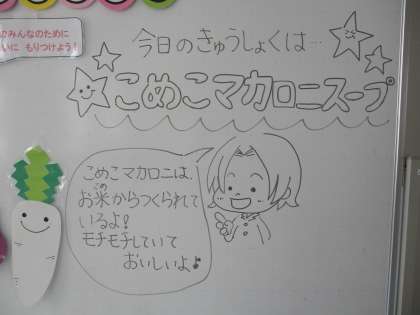 のみんなのために
いに もりつけよう!
今日のきゅうしょくは…
こめこマカロニスープ
こめこマカロニは、
お米からつくられて
いるよ!
モチモチしていて
おいしいよ♪